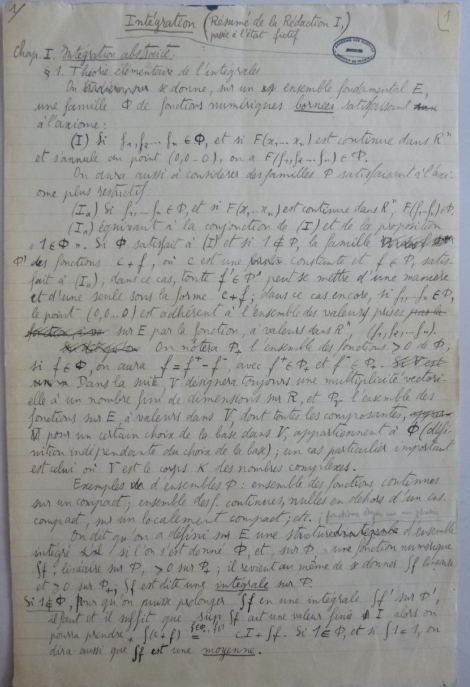 Intégration (Résumé de la Rédaction I,
passée à l'état fictif)
(1
Chap. I. Intégration abstraite.
§ 1. Théorie élémentaire de l'intégrale.
On se donne, sur un ensemble fondamental E,
une famille Φ de fonctions numériques bornées satisfaisant
à l'axiome :
(I) Si f₁, f₂... fₙ ∈ Φ, et si F(x₁... xₙ) est continue dans Rⁿ
et s'annule au point (0,0...0), on a F(f₁, f₂... fₙ) ∈ Φ.
On aura aussi à considérer des familles Φ satisfaisant à l'axi-
ome plus restrictif.
(Iₐ) Si f₁,... fₙ ∈ Φ, et si F(x₁... xₙ) est continue dans Rⁿ, F(f₁...fₙ) ∈ Φ.
(Iₐ) équivaut à la conjonction de (I) et de la proposition
« 1 ∈ Φ ». Si Φ satisfait à (I) et si 1 ∉ Φ, la famille
Φ' des fonctions c + f, où c est une constante et f ∈ Φ, satis-
fait à (Iₐ) ; dans ce cas, toute f' ∈ Φ' peut se mettre d'une manière
et d'une seule sous la forme c + f ; dans ce cas encore, si f₁,... fₙ ∈ Φ,
le point (0,...0) est adhérent à l'ensemble des valeurs prises
sur E par la fonction, à valeurs dans Rⁿ, (f₁,... fₙ).
On notera Φ₊ l'ensemble des fonctions ≥ 0 de Φ ;
si f ∈ Φ, on aura f = f⁺ - f⁻ avec f⁺ ∈ Φ₊ et f⁻ ∈ Φ₊.
Dans la suite, V désignera toujours une multiplicité vectori-
elle à un nombre fini de dimensions sur R, et Φᵥ l'ensemble des
fonctions sur E, à valeurs dans V, dont toutes les composantes,
pour un certain choix de la base dans V, appartiennent à Φ (défi-
nition indépendante du choix de la base) ; un cas particulier important
est celui où V est le corps K des nombres complexes.
Exemples d'ensembles Φ : ensemble des fonctions continues
sur un compact ; ensemble des f. continues, nulles en dehors d'un
compact, sur un localement compact ; etc.
On dit qu'on a défini sur E une structure d'ensemble
intégré si l'on s'est donné Φ et, sur Φ, une fonction numérique
∫f, linéaire sur Φ, ≥ 0 sur Φ₊ ; il revient au même de se donner ∫f linéaire
et ≥ 0 sur Φ₊, ∫f est dite une intégrale sur Φ.
Si 1 ∉ Φ, pour qu'on puisse prolonger ∫f en une intégrale ∫f' sur Φ',
il faut et il suffit que sup ∫f ait une valeur finie I alors on
pourra prendre ∫(c+f) = cI + ∫f. Si 1 ∈ Φ, et si ∫1 = 1, on
dira aussi que ∫f est une moyenne.